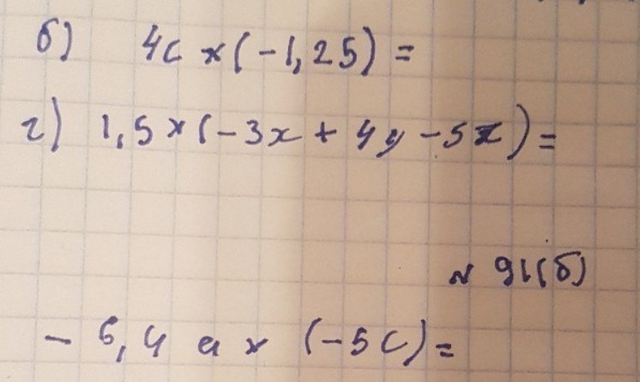 б) 4c × (-1,25) =
г) 1,5 × (-3x + 4y - 5z) =
№ 91(б)
- 6,4 a × (-5c) =